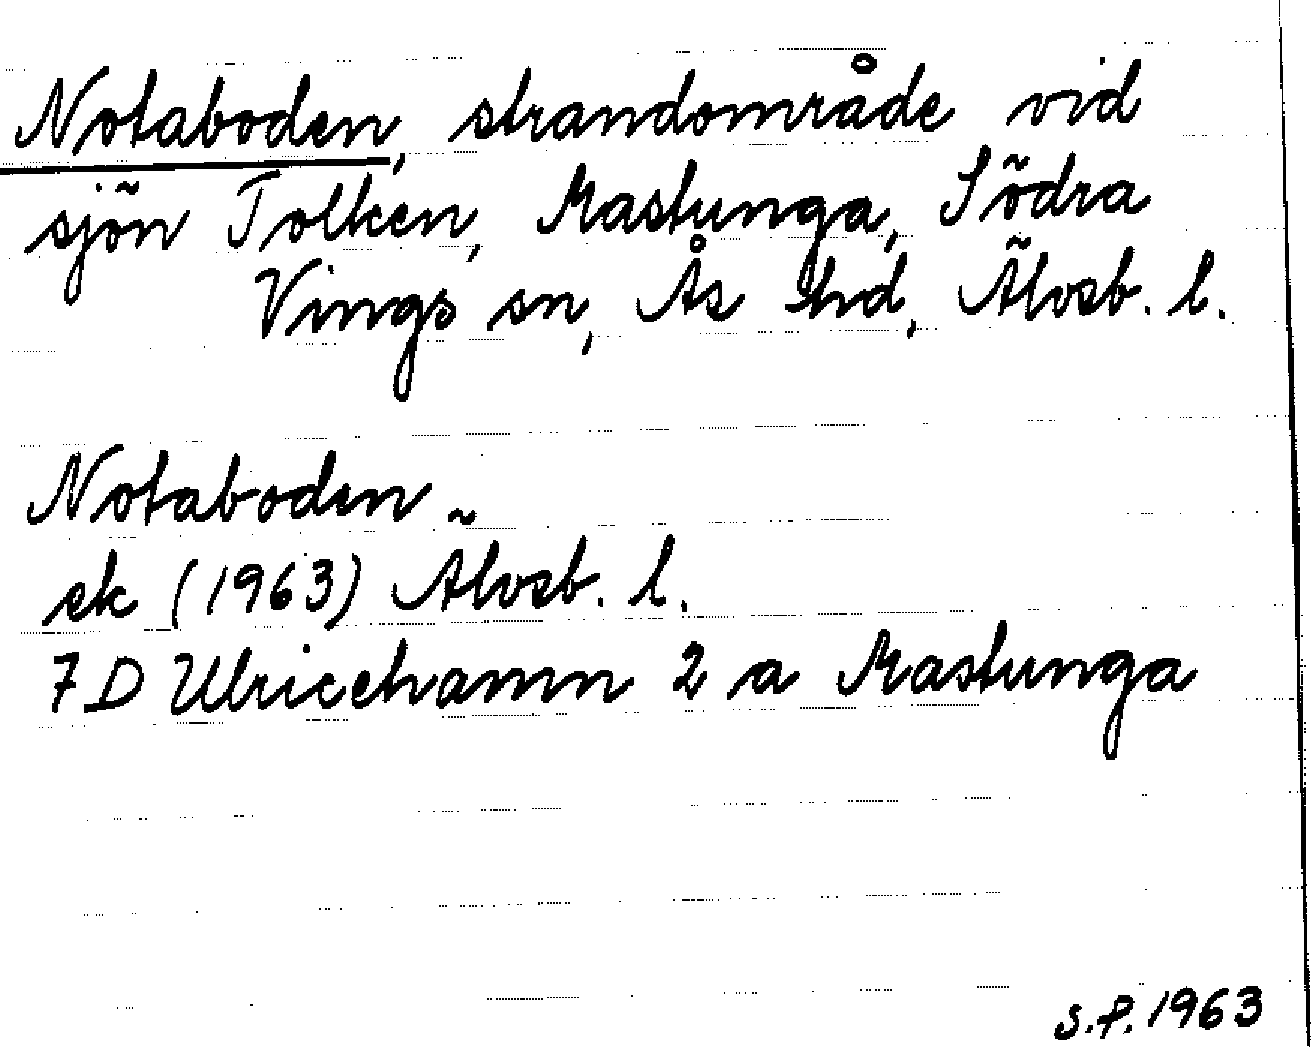 Notaboden, strandområde vid
sjön Tolken, Mastunga, Södra
Vings sn, Ås hd, Älvsb. l.
Notaboden
ek (1963) Älvsb. l.
7D Ulricehamn 2 a Mastunga
S.P. 1963